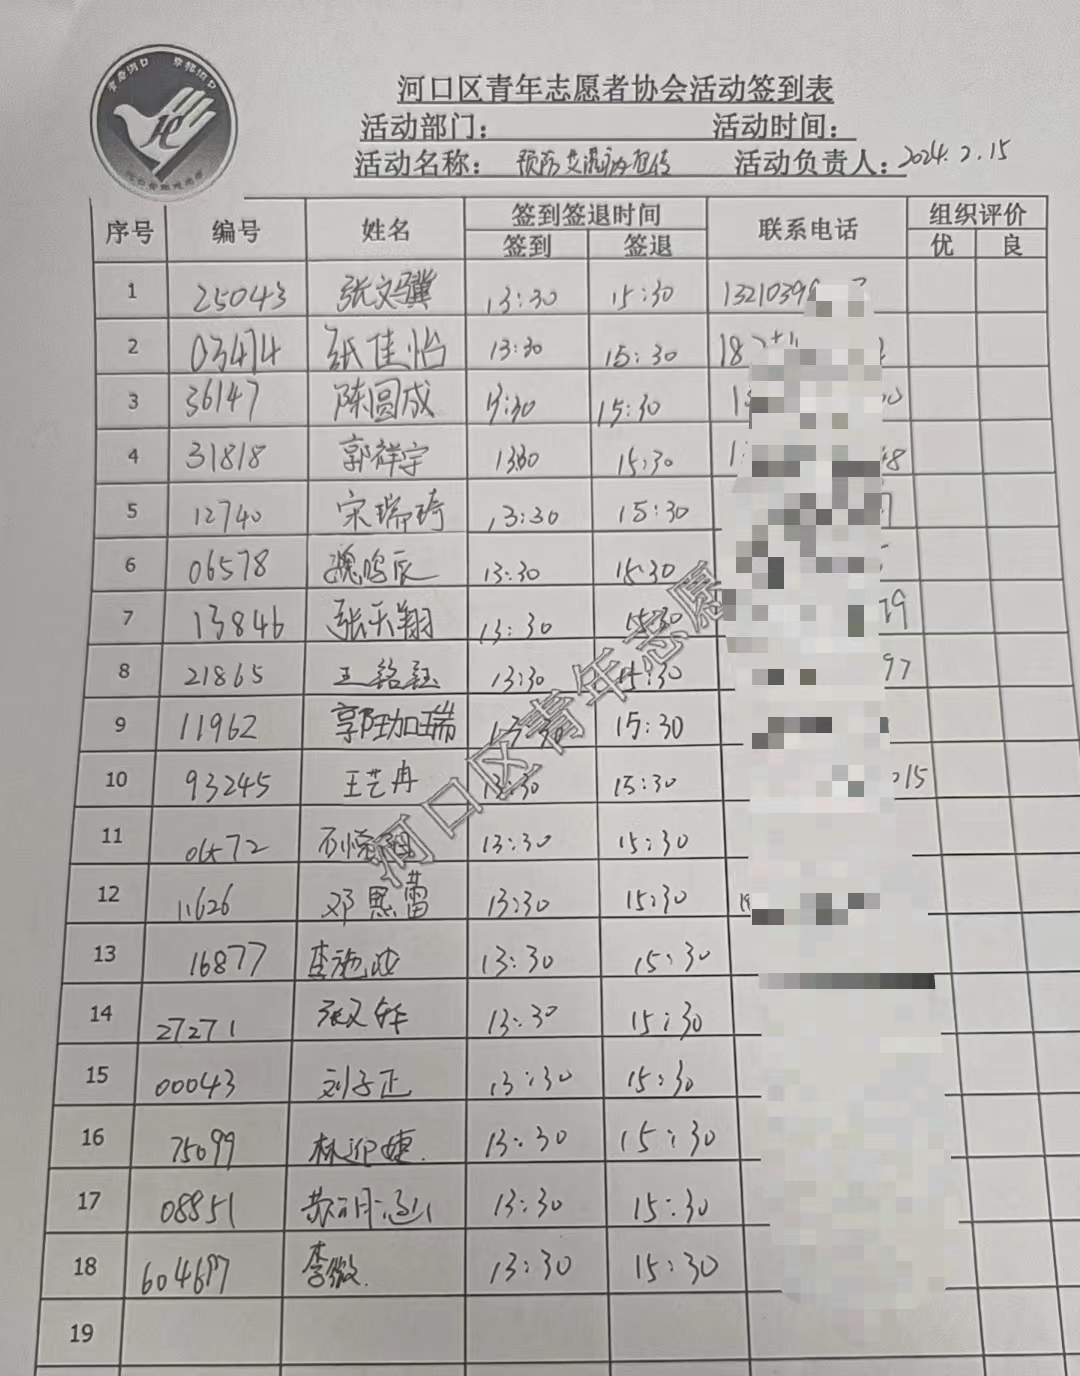 河口区青年志愿者协会活动签到表
活动部门： 活动时间：
活动名称： 预防 宣传 活动负责人：2024.2.15
序号 编号 姓名 签到签退时间 联系电话 组织评价
签到 签退 优 良
1 25043 张文骥 13:30 15:30 1321039
2 03474 张佳怡 13:30 15:30 18
3 36147 陈圆成 13:30 15:30
4 31818 郭祥宇 1330 15:30
5 12740 宋瑞琦 13:30 15:30
6 06578 魏鸣辰 13:30 15:30
7 13846 张天翔 13:30 15:30 79
8 21865 王铭钰 13:30 15:30 97
9 11962 郭珈瑞 13:30 15:30
10 93245 王艺冉 13:30 15:30 015
11 06572 13:30 15:30
12 11626 邓思蕾 13:30 15:30
13 16877 李施 13:30 15:30
14 27271 张又 13:30 15:30
15 00043 刘子正 13:30 15:30
16 75099 林迎婕. 13:30 15:30
17 08851 苏 涵 13:30 15:30
18 604697 李微. 13:30 15:30
19
河口区青年志愿